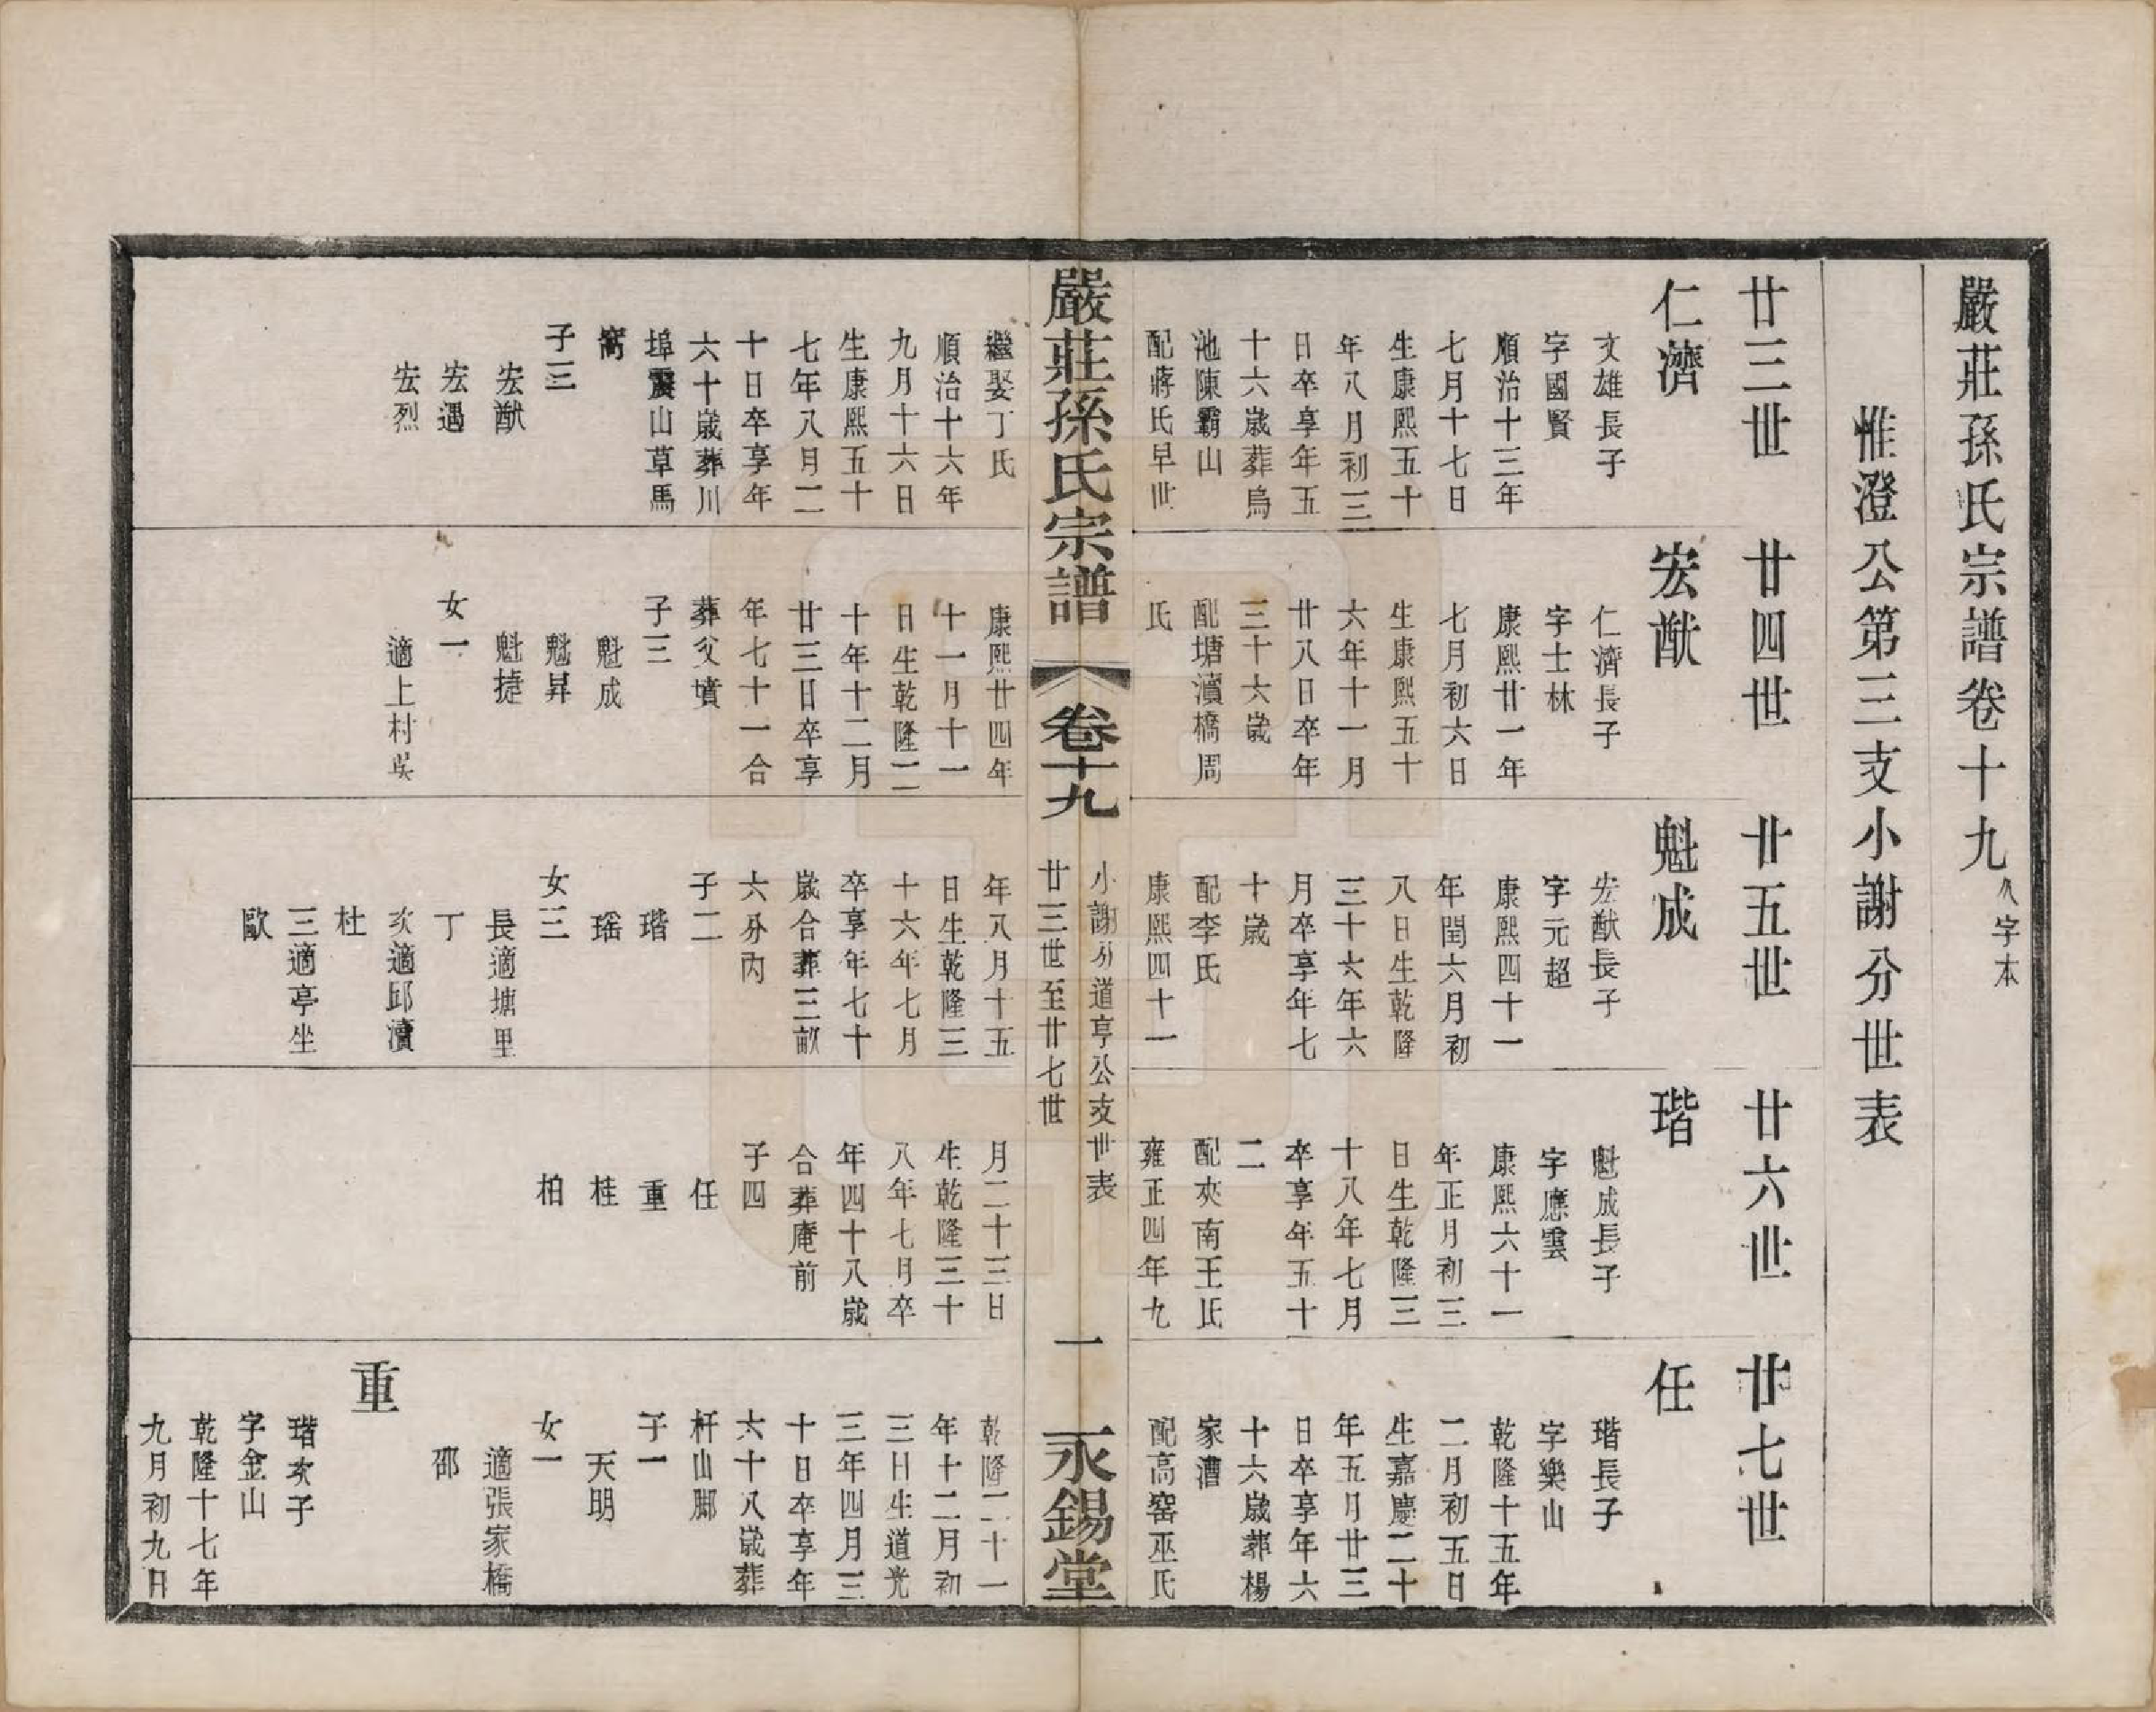 嚴莊孫氏宗譜卷十九 八字本
惟澄公第三支小謝分世表
廿三世
仁濟
文雄長子
字國賢
順治十三年
七月十七日
生康熙五十
年八月初三
日卒享年五
十六歲葬烏
池陳霸山
配蔣氏早世
繼娶丁氏
順治十六年
九月十六日
生康熙五十
七年八月二
十日卒享年
六十歲葬川
埠震山草馬
窩
子三
宏猷
宏遇
宏烈
廿四世
宏猷
仁濟長子
字士林
康熙廿一年
七月初六日
生康熙五十
六年十一月
廿八日卒年
三十六歲
配塘瀆橋周
氏
康熙廿四年
十一月十一
日生乾隆二
十年十二月
廿三日卒享
年七十一合
葬父墳
子三
魁成
魁昇
魁捷
女一
適上村吳
廿五世
魁成
宏猷長子
字元超
康熙四十一
年閏六月初
八日生乾隆
三十六年六
月卒享年七
十歲
配李氏
康熙四十一
年八月十五
日生乾隆三
十六年七月
卒享年七十
歲合葬三畝
六分內
子二
瑎
瑤
女三
長適塘里
丁
次適邱瀆
杜
三適亭坐
歐
廿六世
瑎
魁成長子
字應雲
康熙六十一
年正月初三
日生乾隆三
十八年七月
卒享年五十
二
配夾南王氏
雍正四年九
月二十三日
生乾隆三十
八年七月卒
年四十八歲
合葬庵前
子四
任
重
桂
柏
廿七世
任
瑎長子
字樂山
乾隆十五年
二月初五日
生嘉慶二十
年五月廿三
日卒享年六
十六歲葬楊
家漕
配高窰巫氏
乾隆二十一
年十二月初
三日生道光
三年四月三
十日卒享年
六十八歲葬
杆山脚
子一
天明
女一
適張家橋
邵
重
瑎次子
字金山
乾隆十七年
九月初九日
嚴莊孫氏宗譜 卷十九
小謝分道亨公支世表
廿三世至廿七世
一
永錫堂